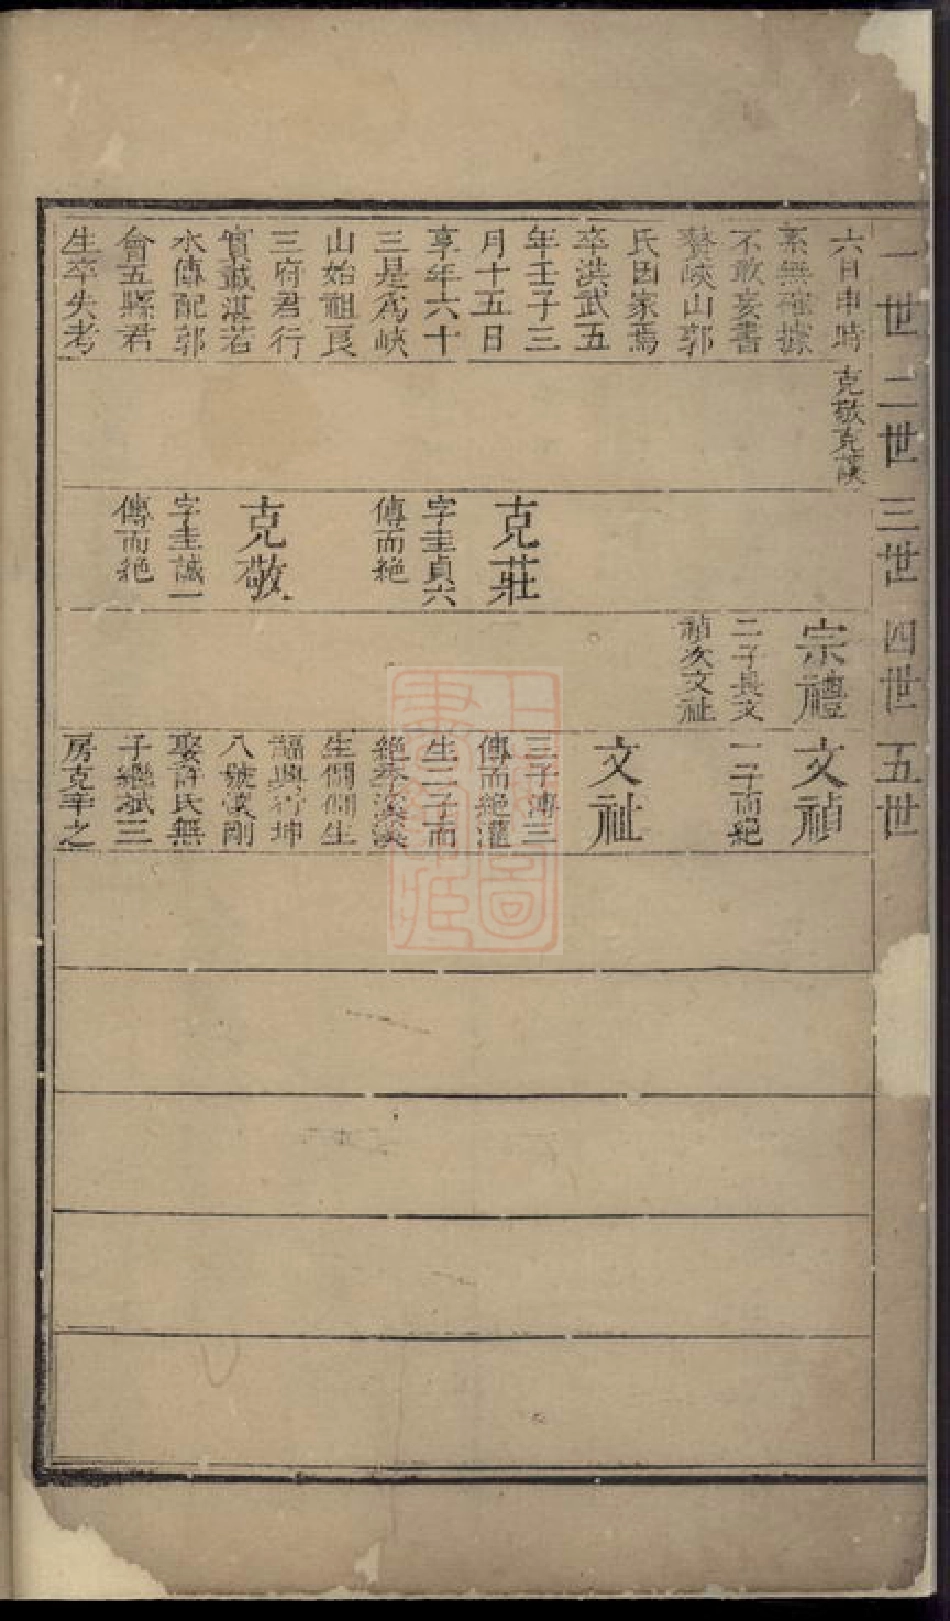 一世 二世 三世 四世 五世
六日申時
系無確據
不敢妄書
贅峽山郭
氏因家焉
卒洪武五
年壬子三
月十五日
享年六十
三是為峽
山始祖良
三府君行
實誠湛若
水傳配郭
會五縣君
生卒失考
克敬克
克莊
字圭貞六
傳而絶
克敬
字圭誠一
傳而絶
宗禮
二子長文
禎次文祉
文禎
一子而絕
文祉
三子溥三
傳而絕灌
生二子而
絕季溪溪
生侗侗生
福興行坤
八號漢剛
娶許氏無
子繼祧三
房克平之